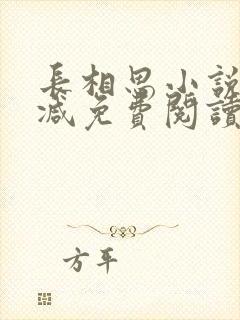 長相思小說
減免費閱讀
方平